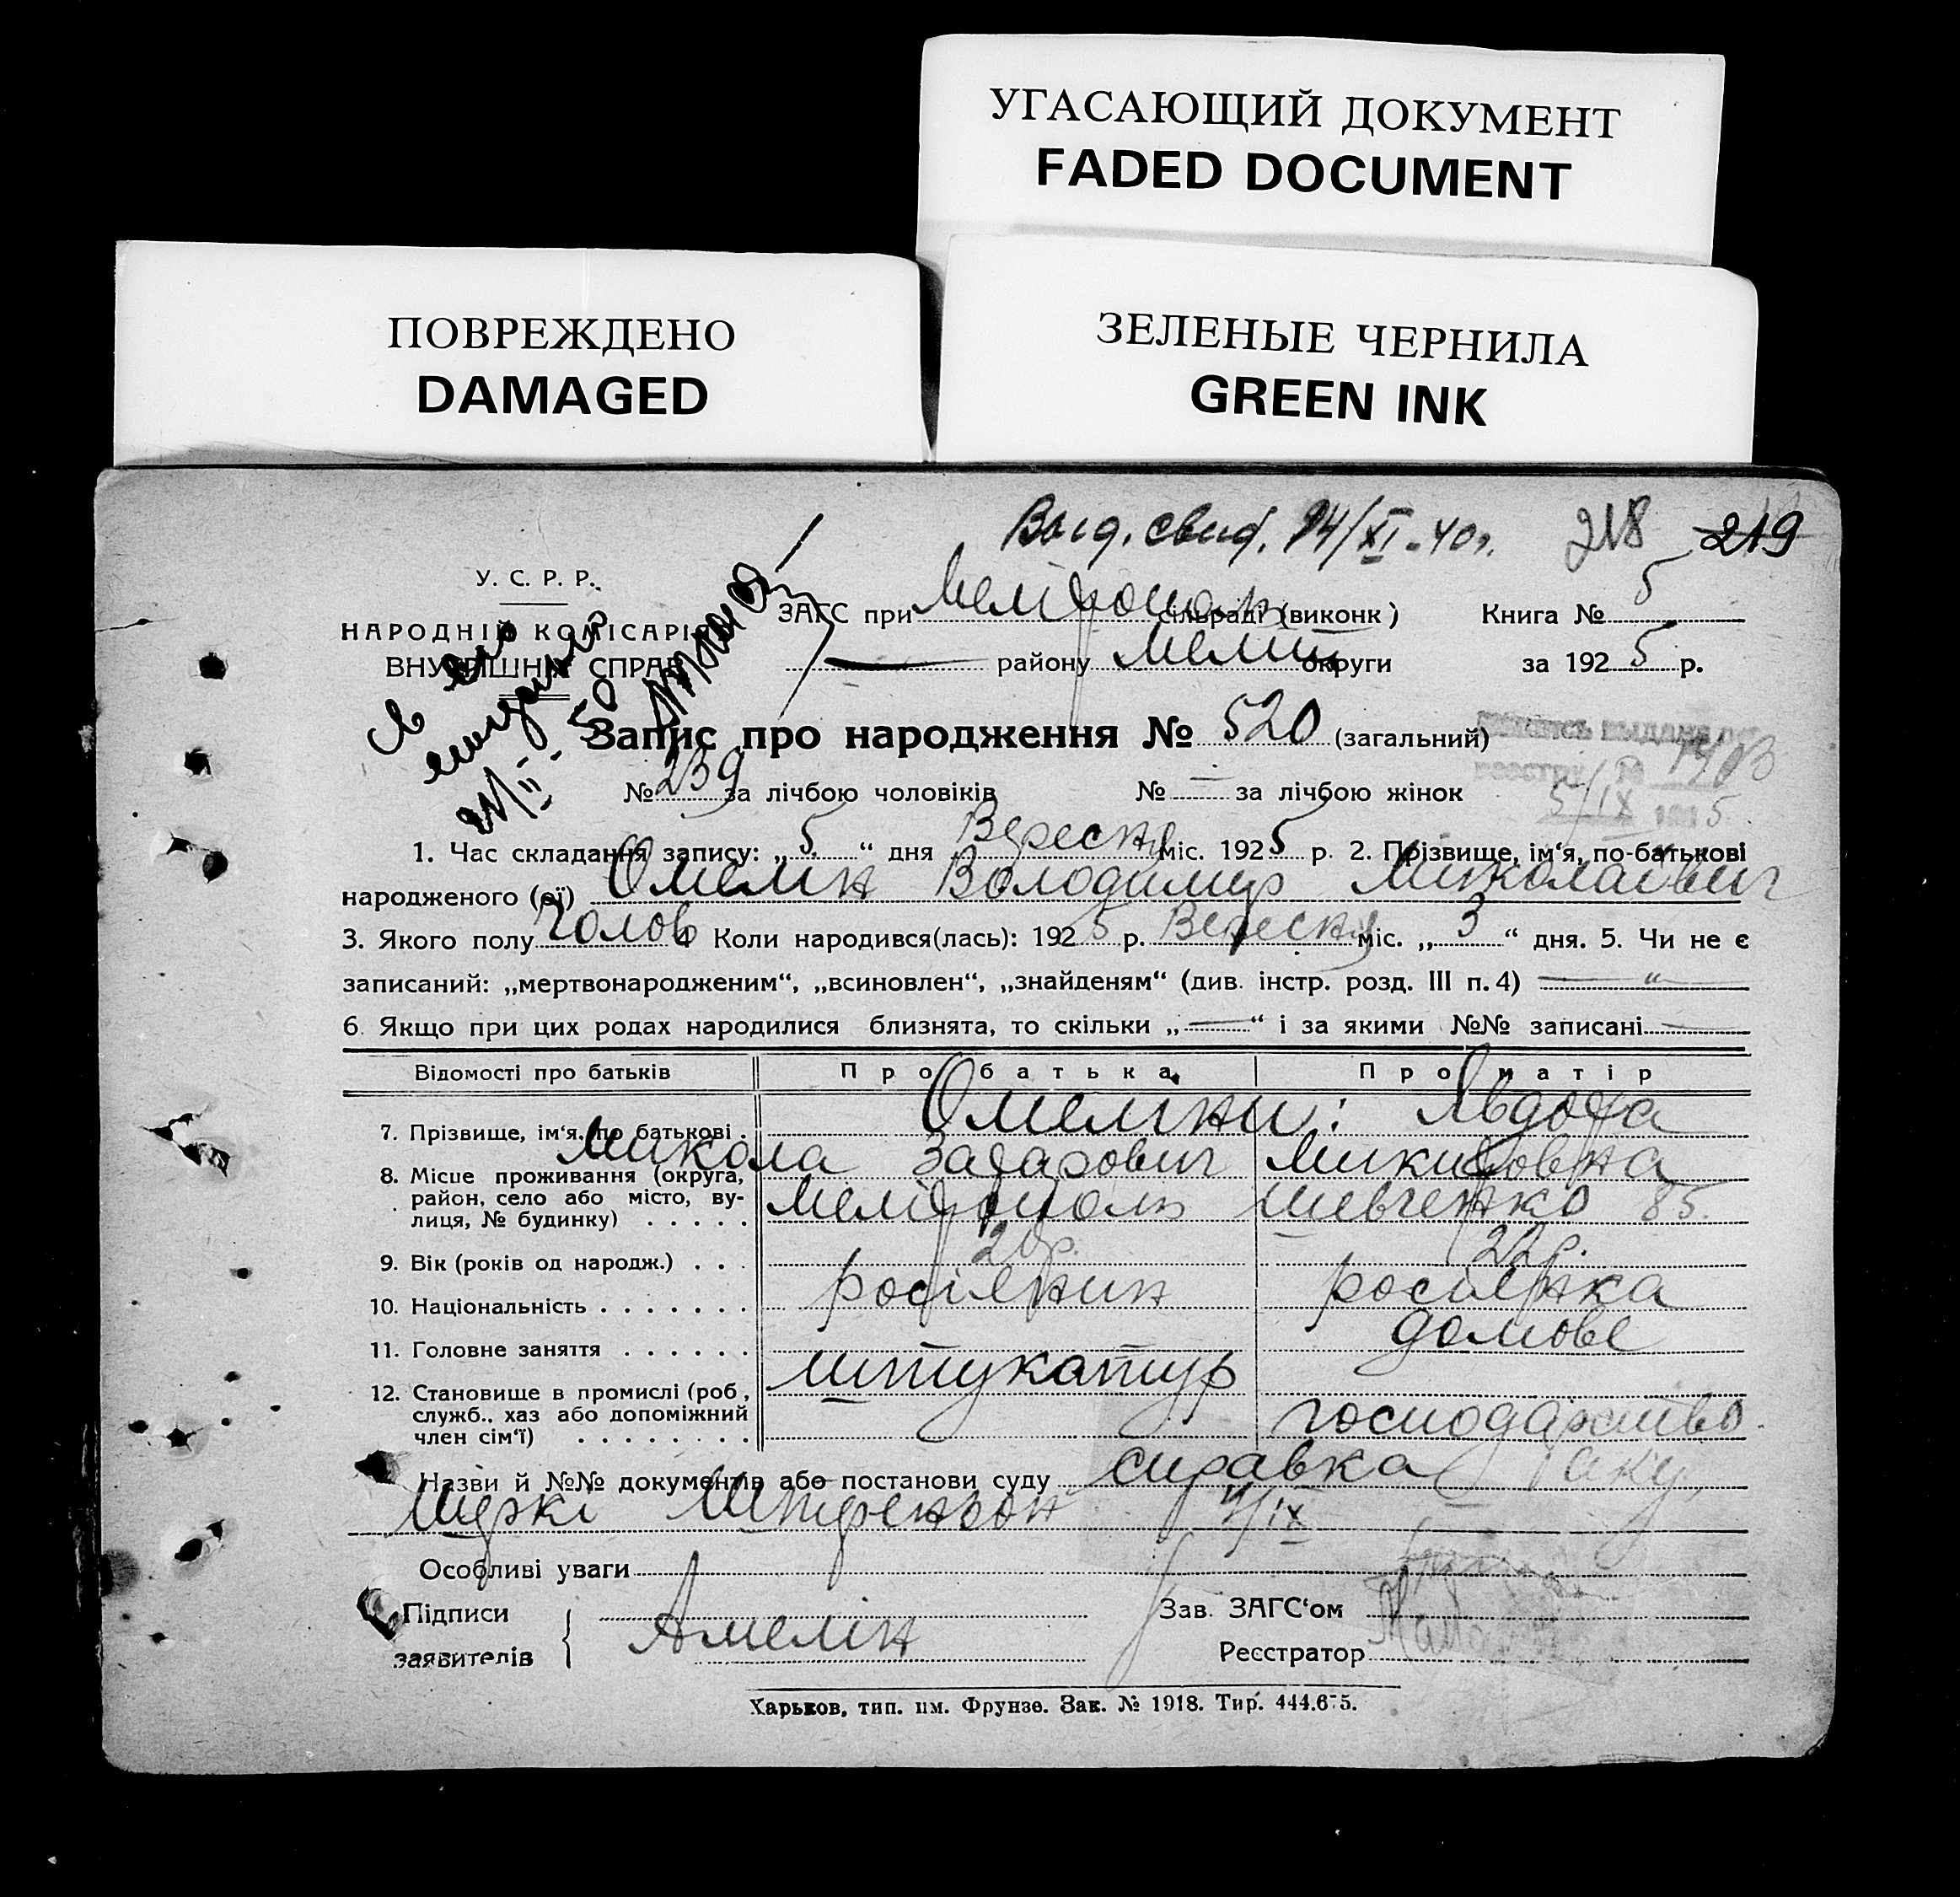 УГАСАЮЩИЙ ДОКУМЕНТ
FADED DOCUMENT
ПОВРЕЖДЕНО
DAMAGED
ЗЕЛЕНЫЕ ЧЕРНИЛА
GREEN INK
Выд. свид. 14/XI-40г. 218 219
У. С. Р. Р.
НАРОДНІЙ КОМІСАРІЯТ
ВНУТРІШНІХ СПРАВ
ЗАГС при Мелітополь сільраді (виконк) Книга № 5
району Меліт округи за 1925 р.
Запис про народження № 520 (загальний)
выдана
1403
5/IX 1925
№ 239 за лічбою чоловіків № — за лічбою жінок
1. Час складання запису: „5“ дня Вересня міс. 1925 р. 2. Прізвище, ім‘я, по-батькові
народженого (ої) Омелін Володимир Миколаївич
3. Якого полу чолов 4 Коли народився(лась): 1925 р. Вересня міс. „3“ дня. 5. Чи не є
записаний: „мертвонародженим“, „всиновлен“, „знайденям“ (див. інстр. розд. III п. 4) — „ —
6. Якщо при цих родах народилися близнята, то скільки „—“ і за якими №№ записані —
Відомості про батьків Про батька Про матір
7. Прізвище, ім‘я, по батькові Омеліни: Явдоха
Микола Захарович Микитовна
8. Місце проживання (округа, район, село або місто, вулиця, № будинку) Мелітополь Шевченко 85.
9. Вік (років од народж.) 20р. 22р.
10. Національність росіянин росіянка
11. Головне заняття штукатур домове
12. Становище в промислі (роб, служб., хаз або допоміжний член сім‘ї) господарство
Назви й №№ документів або постанови суду справка
4/IX
Особливі уваги
Підписи заявителів Амелін
Зав. ЗАГС‘ом
Реєстратор
Харьков, тип. им. Фрунзе. Зак. № 1918. Тир. 444.675.